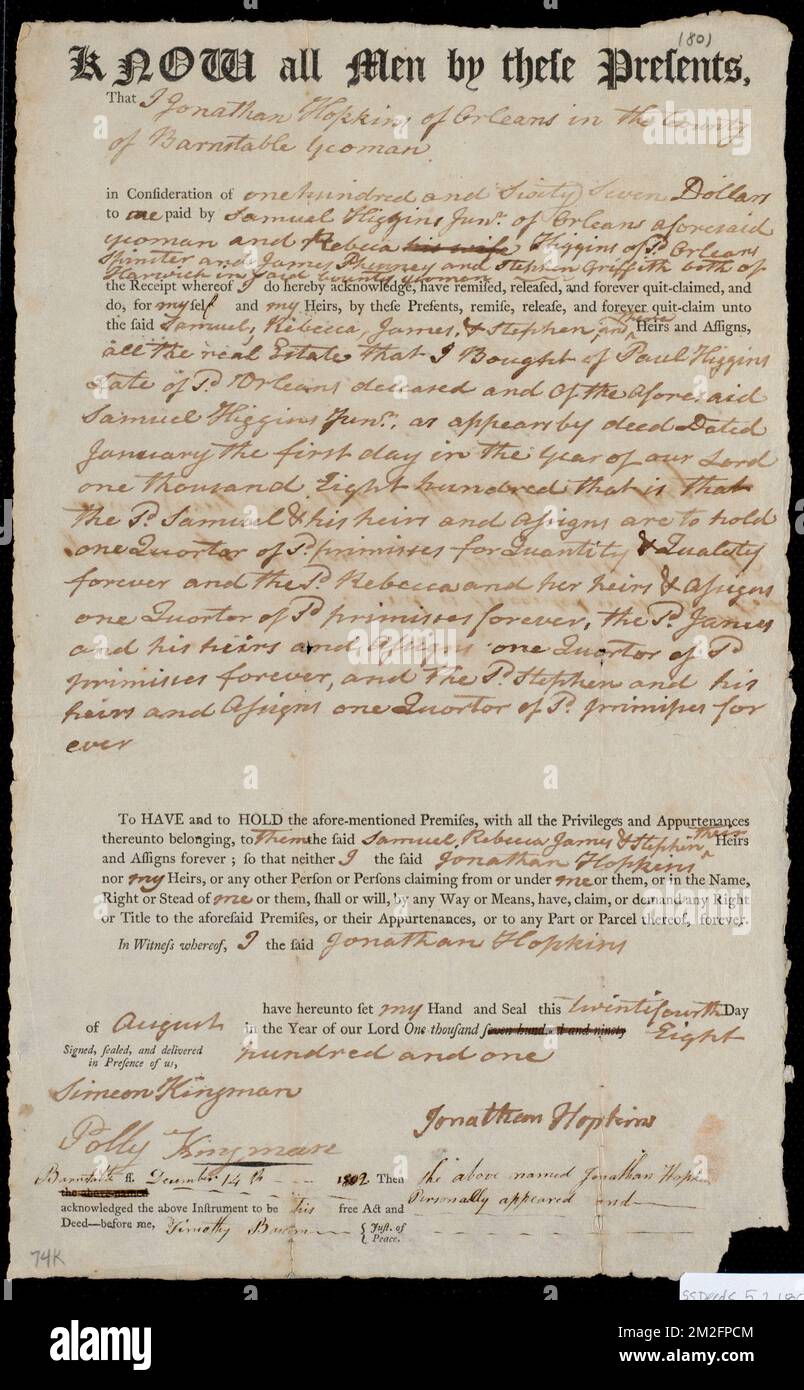 1801
KNOW all Men by theſe Preſents,
That I Jonathan Hopkins of Orleans in the County
of Barnstable yeoman
in Conſideration of one hundred and Sixty Seven Dollars
to me paid by Samuel Higgins Junr. of Orleans aforesaid
yeoman and Rebeca his wife Higgins of Sd. Orleans
Spinster and James Phinney and Stephen Griffith both of
Harwich in Said County yeomen
the Receipt whereof I do hereby acknowledge, have remiſed, releaſed, and forever quit-claimed, and
do, for my self and my Heirs, by theſe Preſents, remiſe, releaſe, and forever quit-claim unto
the ſaid Samuel, Rebecca, James, & Stephen, and their Heirs and Aſſigns,
all the real Estate that I Bought of Paul Higgins
Late of Sd. Orleans deceased and of the aforesaid
Samuel Higgins Junr. as appears by deed Dated
January the first day in the year of our Lord
one thousand Eight hundred that is that
the Sd. Samuel & his heirs and Aſsigns are to hold
one Quortor of Sd. primisses for Quantity & Quality
forever and the Sd. Rebecca and her heirs & Aſsigns
one Quortor of Sd primisses forever, the Sd. James
and his heirs and Aſsigns one Quortor of Sd
primisses forever, and the Sd. Stephen and his
heirs and Aſsigns one Quortor of Sd. primiſses for
ever
To HAVE and to HOLD the afore-mentioned Premiſes, with all the Privileges and Appurtenances
thereunto belonging, to them the ſaid Samuel, Rebecca James & Stephen their Heirs
and Aſſigns forever; ſo that neither I the ſaid Jonathan Hopkins
nor my Heirs, or any other Perſon or Perſons claiming from or under me or them, or in the Name,
Right or Stead of me or them, ſhall or will, by any Way or Means, have, claim, or demand any Right
or Title to the aforeſaid Premiſes, or their Appurtenances, or to any Part or Parcel thereof, forever.
In Witneſs whereof, I the ſaid Jonathan Hopkins
have hereunto ſet my Hand and Seal this twenti fourth Day
of August in the Year of our Lord One thouſand ſeven hundred and ninety Eight
hundred and one
Signed, ſealed, and delivered
in Preſence of us,
Simeon Kingman
Polly Kingman
Jonathan Hopkins
Barnstable ſſ. December 14th 1802 Then the above named Jonathan Hopkins
the above-named Personally appeared and
acknowledged the above Inſtrument to be his free Act and
Deed—before me, Timothy {Juſt. of
Peace.
74K
alamy
Image ID: 2M2FPCM
www.alamy.com